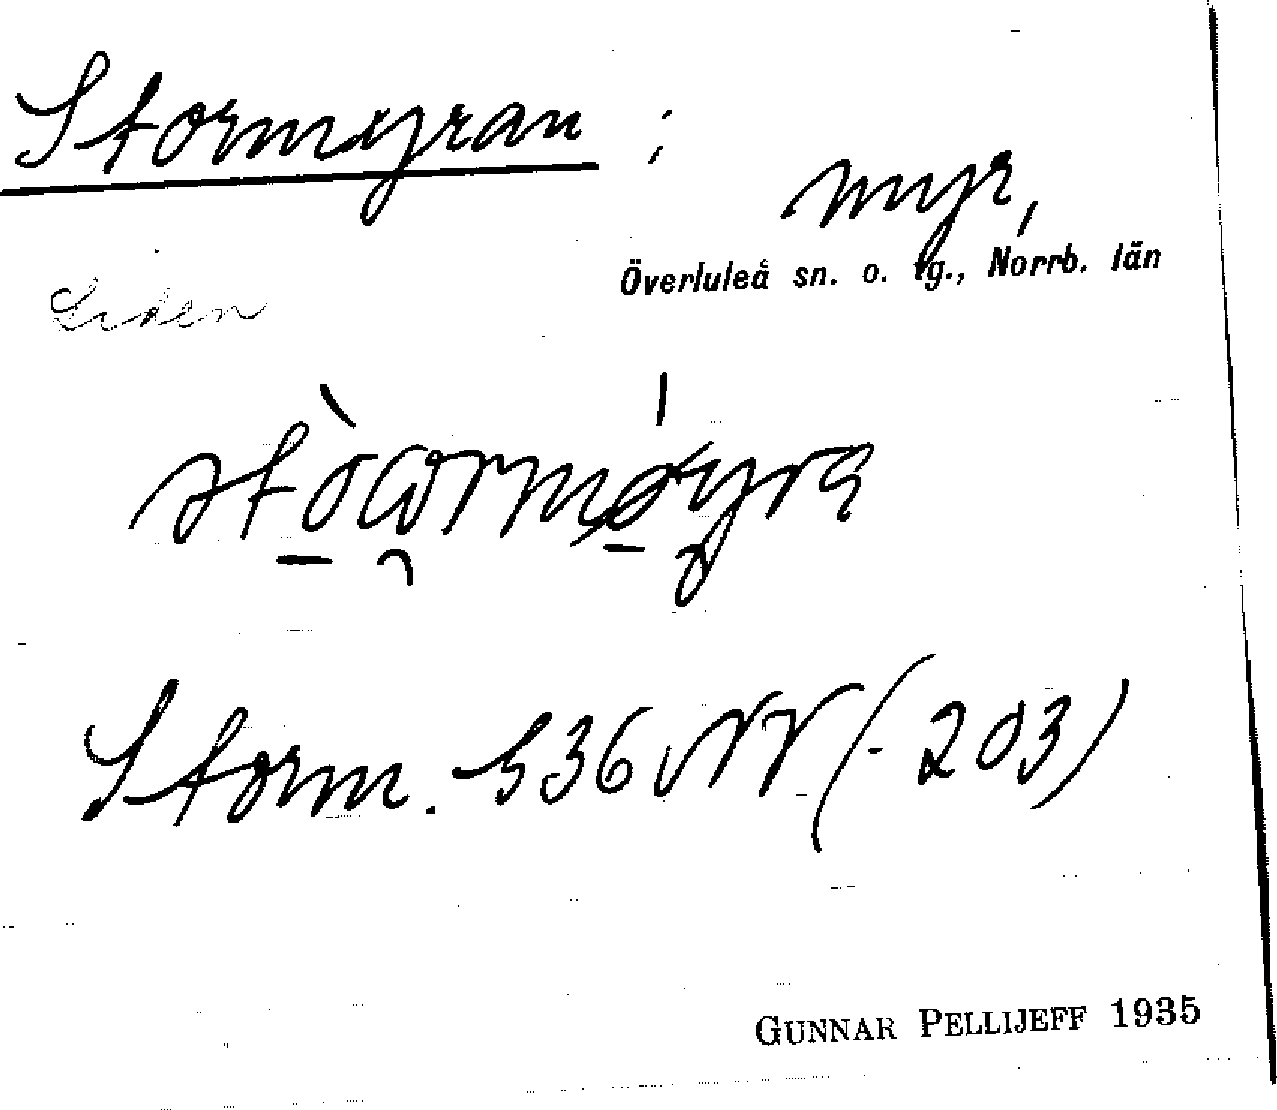 Stormyran ;
myr,
Överluleå sn. o. tg., Norrb. län
Liden
Storm. 536 NV (-203)
GUNNAR PELLIJEFF 1935